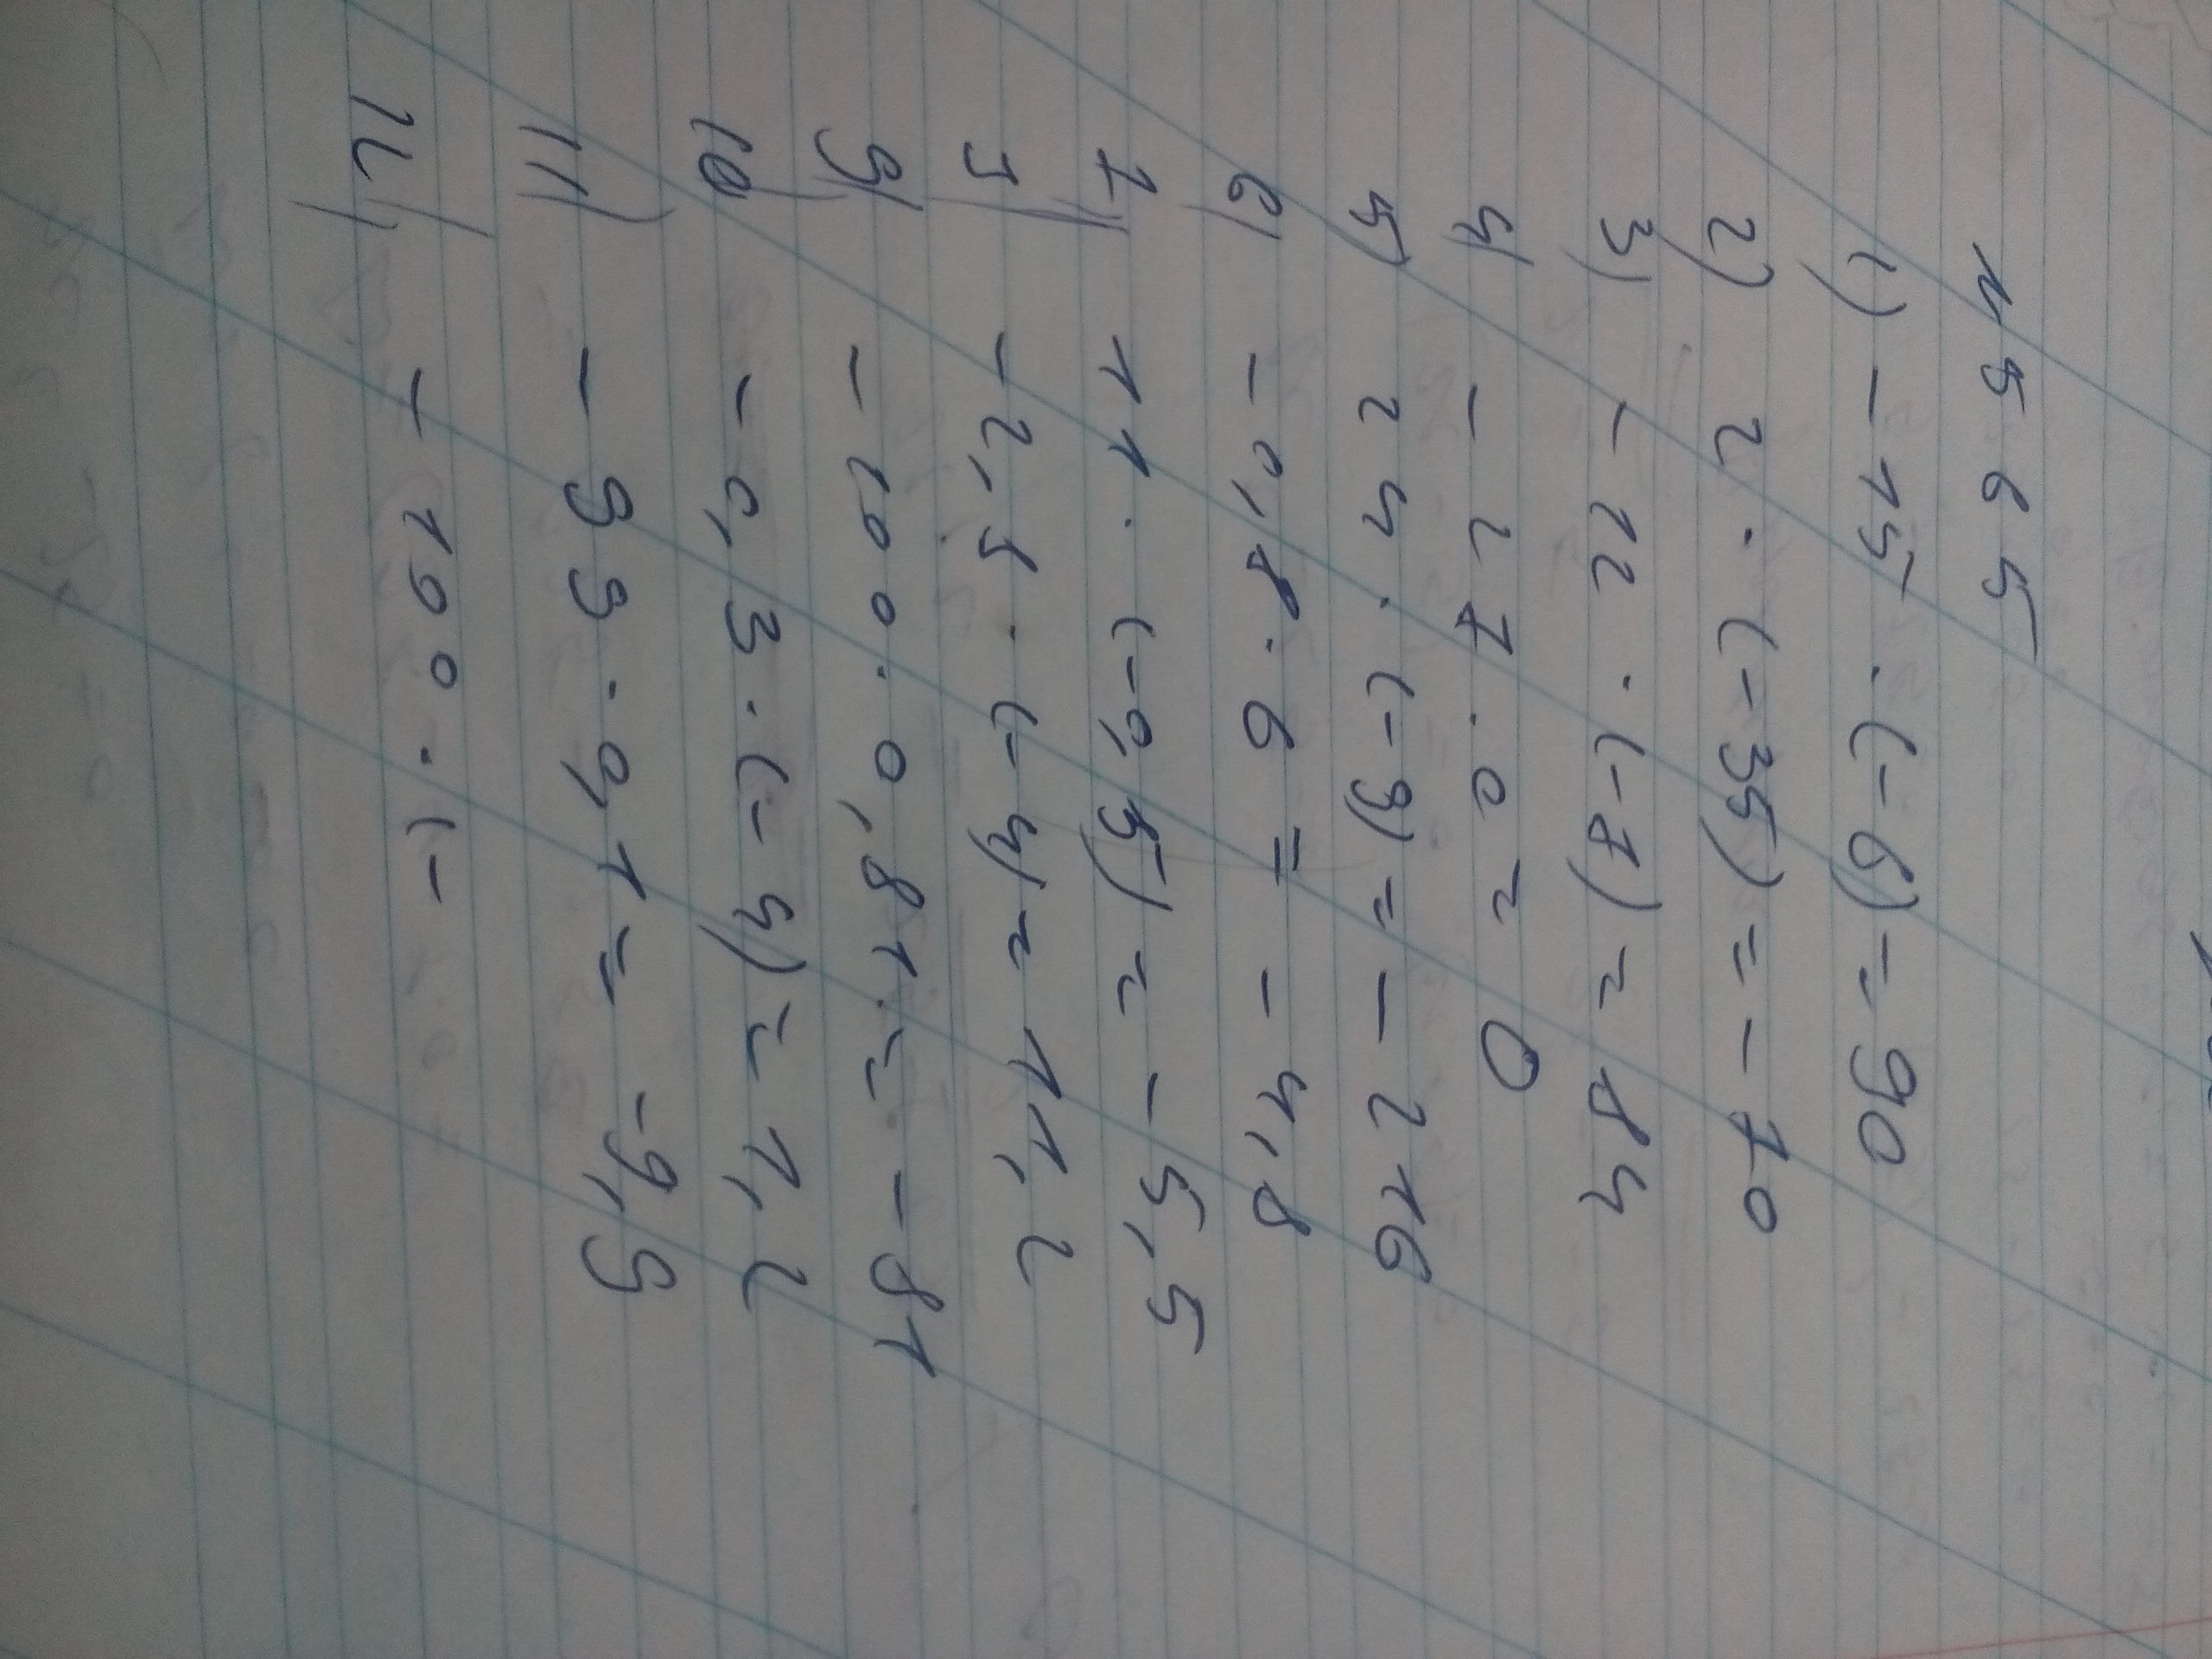 № 565
1) -15 · (-6) = 90
2) 2 · (-35) = -70
3) -12 · (-7) = 84
4) -27 · 0 = 0
5) 24 · (-9) = -216
6) -0,8 · 6 = -4,8
7) 11 · (-0,5) = -5,5
-2,8 · (-4) = 11,2
9) -100 · 0,81 = -81
10) -0,3 · (-4) = 1,2
11) -99 · 0,1 = -9,9
12) -100 · (-